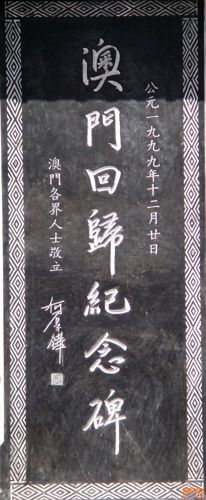 公元一九九九年十二月廿日
澳門回歸紀念碑
澳門各界人士敬立